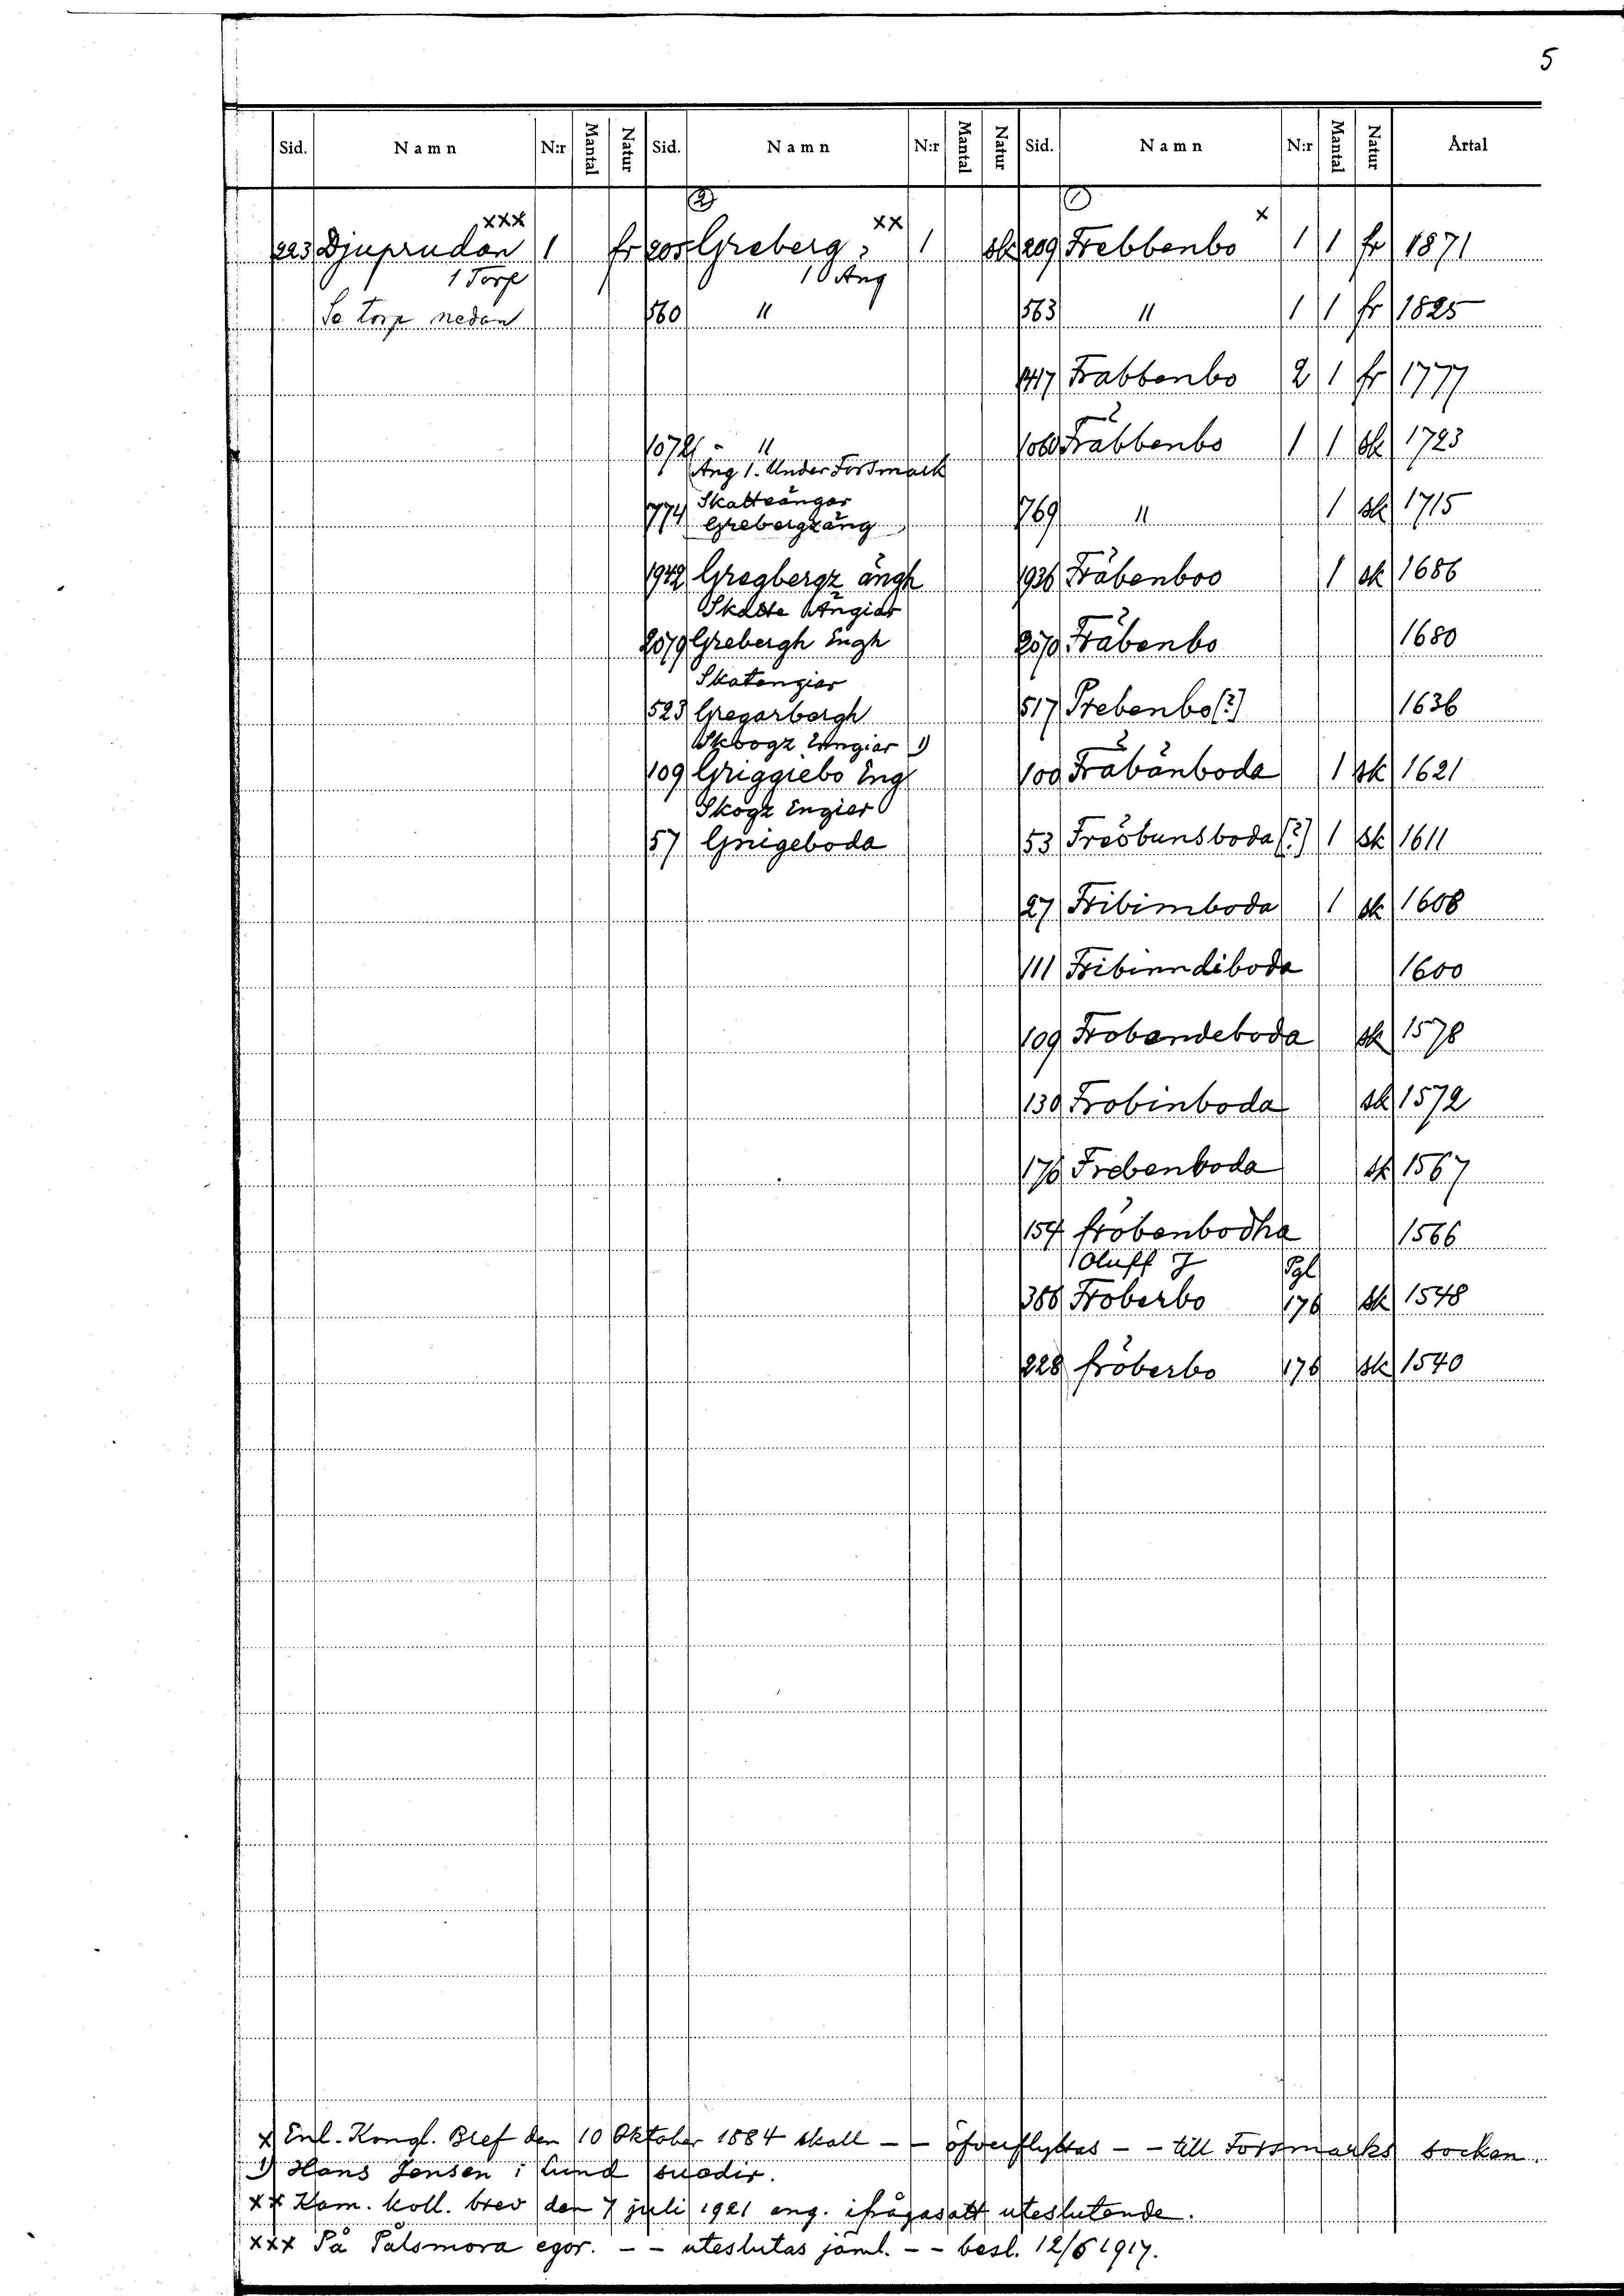 5
Sid. Namn N:r Mantal Natur Sid. Namn N:r Mantal Natur Sid. Namn N:r Mantal Natur Årtal
2 1
xxx xx x
223 Djuprudan 1 fr 205 Greberg, 1 sk 209 Frebbenbo 1 1 fr 1871
1 Torp 1 Äng
Se torp nedan 560 " 563 " 1 1 fr 1825
1417 Frabbenbo 2 1 fr 1777
1072 " 1060 Fräbbenbo 1 1 sk 1723
Äng 1. Under Forsmark
Skatteängar
774 Grebergzäng 769 " 1 sk 1715
1942 Gregbergz ängh 1936 Fräbenboo 1 sk 1686
Skatte Ängiar
2079 Grebergh Engh 2070 Fräbenbo 1680
Skatengiar
523 Gregarbergh 517 Prebenbo (?) 1636
Skoogz Enngiar 1)
109 Griggiebo Eng 100 Fräbänboda 1 sk 1621
Skogz Engier
57 Gnigeboda 53 Freobunsboda (?) 1 sk 1611
27 Fribimboda 1 sk 1608
111 Fribinndiboda 1600
109 Frobendeboda sk 1578
130 Frobinboda sk 1572
176 Frebenboda sk 1567
154 fröbenbodha 1566
Oluff J Pgl
366 Froberbo 176 sk 1548
228 fröberbo 176 sk 1540
x Enl. Kongl. Bref den 10 Oktober 1884 skall - - öfverflyttas - - till Forsmarks socken.
1) Hans Jensen i Lund suodir.
xx Kam. koll. brev den 7 juli 1921 ang. ifrågasatt uteslutande.
xxx På Pålsmora egor. - - uteslutas jäml. - - besl. 12/6 1917.